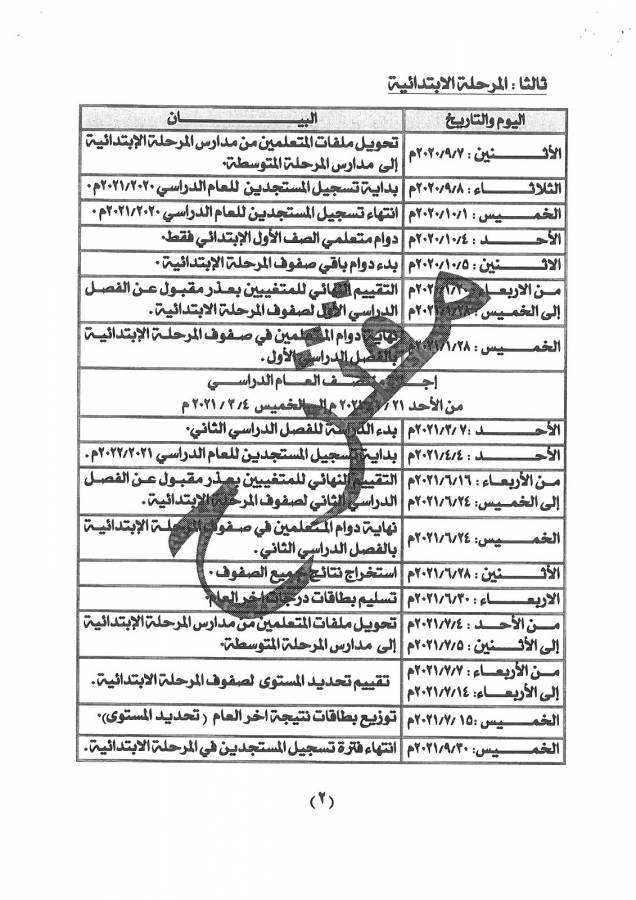 ثالثا : المرحلة الابتدائية
اليوم والتاريخ
البيـــــــــان
الأثنـــــين : ٢٠٢٠/٩/٧م
تحويل ملفات المتعلمين من مدارس المرحلة الإبتدائية
إلى مدارس المرحلة المتوسطة.
الثلاثـــاء : ٢٠٢٠/٩/٨م
بداية تسجيل المستجدين للعام الدراسي ٢٠٢١/٢٠٢٠م.
الخميس : ٢٠٢٠/١٠/١م
انتهاء تسجيل المستجدين للعام الدراسي ٢٠٢١/٢٠٢٠م.
الأحـــد : ٢٠٢٠/١٠/٤م
دوام متعلمي الصف الأول الإبتدائي فقط.
الاثنــين : ٢٠٢٠/١٠/٥م
بدء دوام باقي صفوف المرحلة الإبتدائية .
من الاربعاء
إلى الخميس
التقييم النهائي للمتغيبين بعذر مقبول عن الفصل
الدراسي الأول لصفوف المرحلة الابتدائية.
الخميـــس : ٢٠٢١/١/٢٨م
نهاية دوام المتعلمين في صفوف المرحلة الابتدائية
بالفصل الدراسي الأول.
العام الدراسي
من الأحد ٢١ / الخميس ٤ /٣ / ٢٠٢١ م
الأحـــد : ٢٠٢١/٣/٧م
بدء الدراسة للفصل الدراسي الثاني.
الأحـــد : ٢٠٢١/٤/٤م
بداية تسجيل المستجدين للعام الدراسي ٢٠٢٢/٢٠٢١م.
من الأربعاء : ٢٠٢١/٦/١٦م
إلى الخميس: ٢٠٢١/٦/٢٤م
التقييم النهائي للمتغيبين بعذر مقبول عن الفصل
الدراسي الثاني لصفوف المرحلة الابتدائية.
الخميـــس: ٢٠٢١/٦/٢٤م
نهاية دوام المتعلمين في صفوف المرحلة الإبتدائية
بالفصل الدراسي الثاني .
الأثنــين : ٢٠٢١/٦/٢٨م
استخراج نتائج جميع الصفوف .
الاربعـــاء : ٢٠٢١/٦/٣٠م
تسليم بطاقات درجات اخر العام.
من الأحــد : ٢٠٢١/٧/٤م
إلى الأثنــين : ٢٠٢١/٧/٥م
تحويل ملفات المتعلمين من مدارس المرحلة الإبتدائية
إلى مدارس المرحلة المتوسطة.
من الأربعاء : ٢٠٢١/٧/٧م
إلى الأربعاء: ٢٠٢١/٧/١٤م
تقييم تحديد المستوى لصفوف المرحلة الابتدائية.
الخميـــس :٢٠٢١/٧/١٥م
توزيع بطاقات نتيجة اخر العام ( تحديد المستوى).
الخميـــس: ٢٠٢١/٩/٣٠م
انتهاء فترة تسجيل المستجدين في المرحلة الابتدائية.
مقترح
(٢)